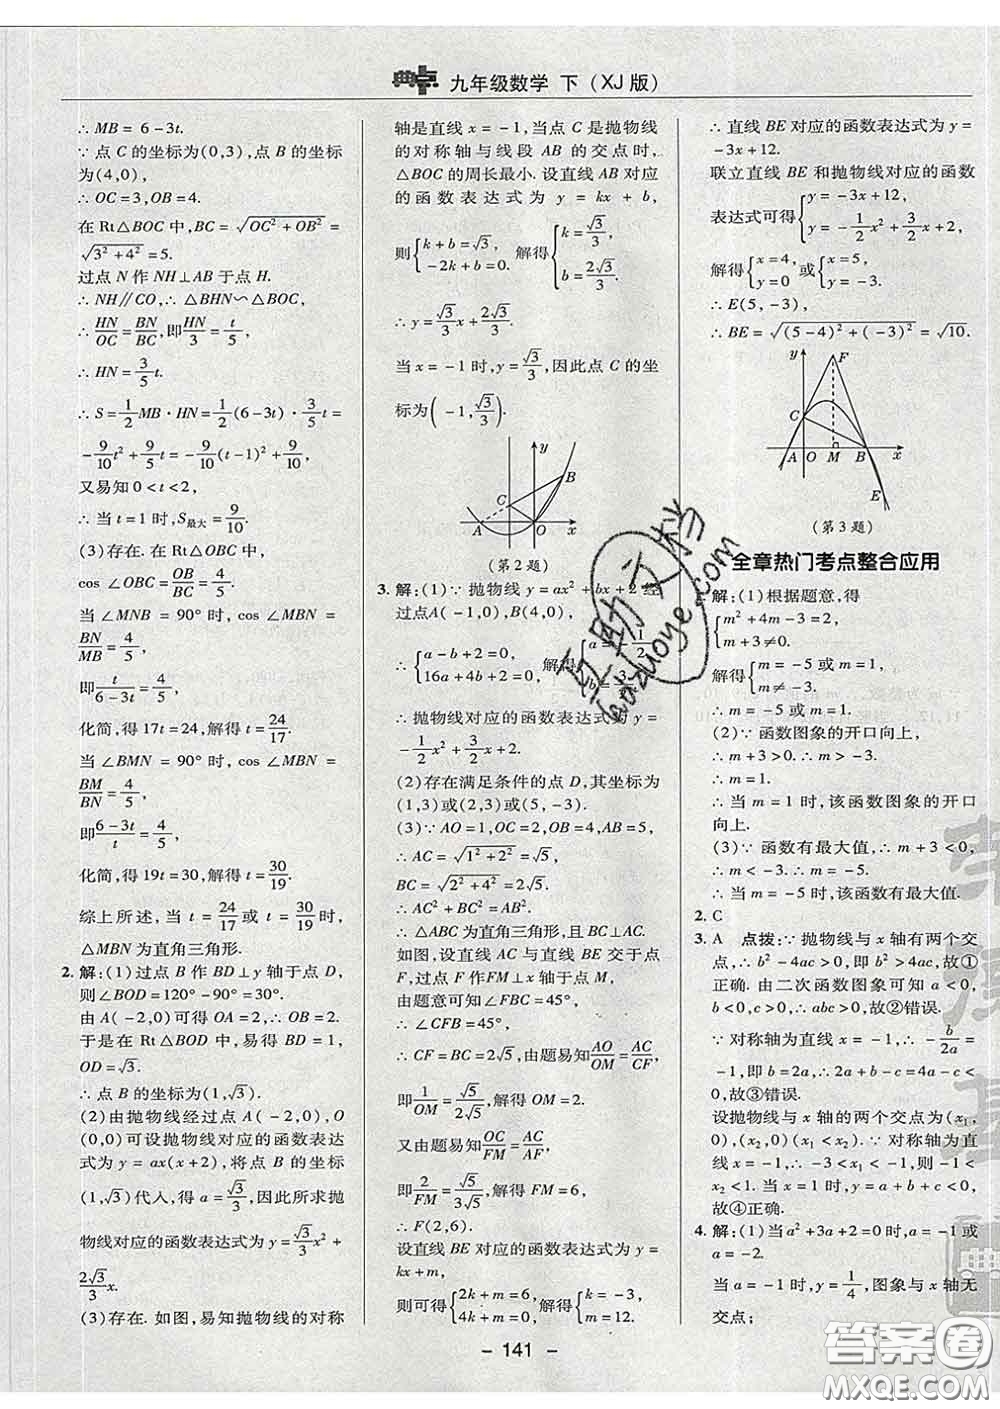 典点 九年级数学 下(XJ版)
∴ MB = 6-3t.
∵ 点 C 的坐标为(0,3),点 B 的坐标
为(4,0),
∴ OC=3,OB=4.
在 Rt△BOC 中,BC=√(OC²+OB²)=
√(3²+4²)=5.
过点 N 作 NH⊥AB 于点 H.
∴ NH∥CO,∴ △BHN∽△BOC,
∴ HN/OC=BN/BC,即HN/3=t/5,
∴ HN=3/5t.
∴ S=1/2MB·HN=1/2(6-3t)·3/5t=
-9/10t²+9/5t=-9/10(t-1)²+9/10,
又易知 0<t<2,
∴ 当 t=1 时,S最大=9/10.
(3)存在. 在 Rt△OBC 中,
cos ∠OBC=OB/BC=4/5.
当 ∠MNB = 90° 时, cos ∠MBN =
BN/MB=4/5,
即t/(6-3t)=4/5,
化简,得 17t=24,解得 t=24/17.
当 ∠BMN = 90° 时, cos ∠MBN =
BM/BN=4/5,
即(6-3t)/t=4/5,
化简,得 19t=30,解得 t=30/19.
综上所述,当 t=24/17或 t=30/19时,
△MBN 为直角三角形.
2. 解:(1)过点 B 作 BD⊥y 轴于点 D,
则∠BOD=120°-90°=30°.
由 A(-2,0)可得 OA=2,∴ OB=2.
于是在 Rt△BOD 中,易得 BD=1,
OD=√3.
∴ 点 B 的坐标为(1,√3).
(2)由抛物线经过点 A(-2,0),O
(0,0)可设抛物线对应的函数表达
式为 y=ax(x+2),将点 B 的坐标
(1,√3)代入,得 a=√3/3,因此所求抛
物线对应的函数表达式为 y=√3/3x²+
2√3/3x.
(3)存在. 如图,易知抛物线的对称
轴是直线 x=-1,当点 C 是抛物线
的对称轴与线段 AB 的交点时,
△BOC 的周长最小. 设直线 AB 对应
的函数表达式为 y = kx + b,
则{k+b=√3, -2k+b=0. 解得{k=√3/3, b=2√3/3.
∴ y=√3/3x+2√3/3.
当 x=-1 时,y=√3/3,因此点 C 的坐
标为(-1,√3/3).
y B C A O x
(第 2 题)
3. 解:(1)∵ 抛物线 y=ax²+bx+2 经
过点A(-1,0),B(4,0),
∴ {a-b+2=0, 16a+4b+2=0, 解得{a=-1/2, b=3/2.
∴ 抛物线对应的函数表达式为 y=
-1/2x²+3/2x+2.
(2)存在满足条件的点 D,其坐标为
(1,3)或(2,3)或(5,-3).
(3)∵ AO=1,OC=2,OB=4,AB=5,
∴ AC=√(1²+2²)=√5,
BC=√(2²+4²)=2√5.
∴ AC²+BC²=AB².
∴ △ABC 为直角三角形,且 BC⊥AC.
如图,设直线 AC 与直线 BE 交于点
F,过点 F作FM⊥x 轴于点 M,
由题意可知∠FBC=45°,
∴ ∠CFB=45°,
∴ CF=BC=2√5,由题易知AO/OM=AC/CF,
即1/OM=√5/2√5,解得 OM=2.
又由题易知OC/FM=AC/AF,
即2/FM=√5/3√5,解得 FM=6,
∴ F(2,6).
设直线 BE 对应的函数表达式为 y=
kx+m,
则可得{2k+m=6, 4k+m=0, 解得{k=-3, m=12.
∴ 直线 BE 对应的函数表达式为 y=
-3x+12.
联立直线 BE 和抛物线对应的函数
表达式可得{y=-3x+12, y=-1/2x²+3/2x+2,
解得{x=4, y=0 或{x=5, y=-3.
∴ E(5,-3),
∴ BE=√((5-4)²+(-3)²)=√10.
y F C A O M B x E
(第 3 题)
全章热门考点整合应用
解:(1)根据题意,得
{m²+4m-3=2, m+3≠0.
解得{m=-5或m=1, m≠-3.
∴ m=-5或 m=1.
(2)∵ 函数图象的开口向上,
∴ m+3>0. ∴ m>-3.
∴ m=1.
∴ 当 m=1 时,该函数图象的开口
向上.
(3)∵ 函数有最大值,∴ m+3<0,
∴ m<-3. ∴ m=-5.
∴ 当 m=-5 时,该函数有最大值.
2. C
3. A 点拨:∵ 抛物线与 x 轴有两个交
点,∴ b²-4ac>0,即 4ac<b²,故①
正确. 由二次函数图象可知 a<0,
b<0,c>0,∴ abc>0,故②错误.
∵ 对称轴为直线 x=-1,∴ -b/2a=
-1,即 b=2a,∴ b+c=2a+c≠
0,故③错误.
设抛物线与 x 轴的两个交点为(x₁,
0),(x₂,0)(x₁<x₂). ∵ 对称轴为直
线 x=-1,∴ x₁>-3,∴ -3<x₁<
x₂<1. 当 x=1 时,y=a+b+c<0,
故④正确.
4. 解:(1)当 a²+3a+2=0时,a=-1或
a=-2.
当 a=-1 时,y=1/4,图象与 x 轴无
交点;
- 141 -
互助文档
(aozuoye.com)
答案圈
MXQE.COM